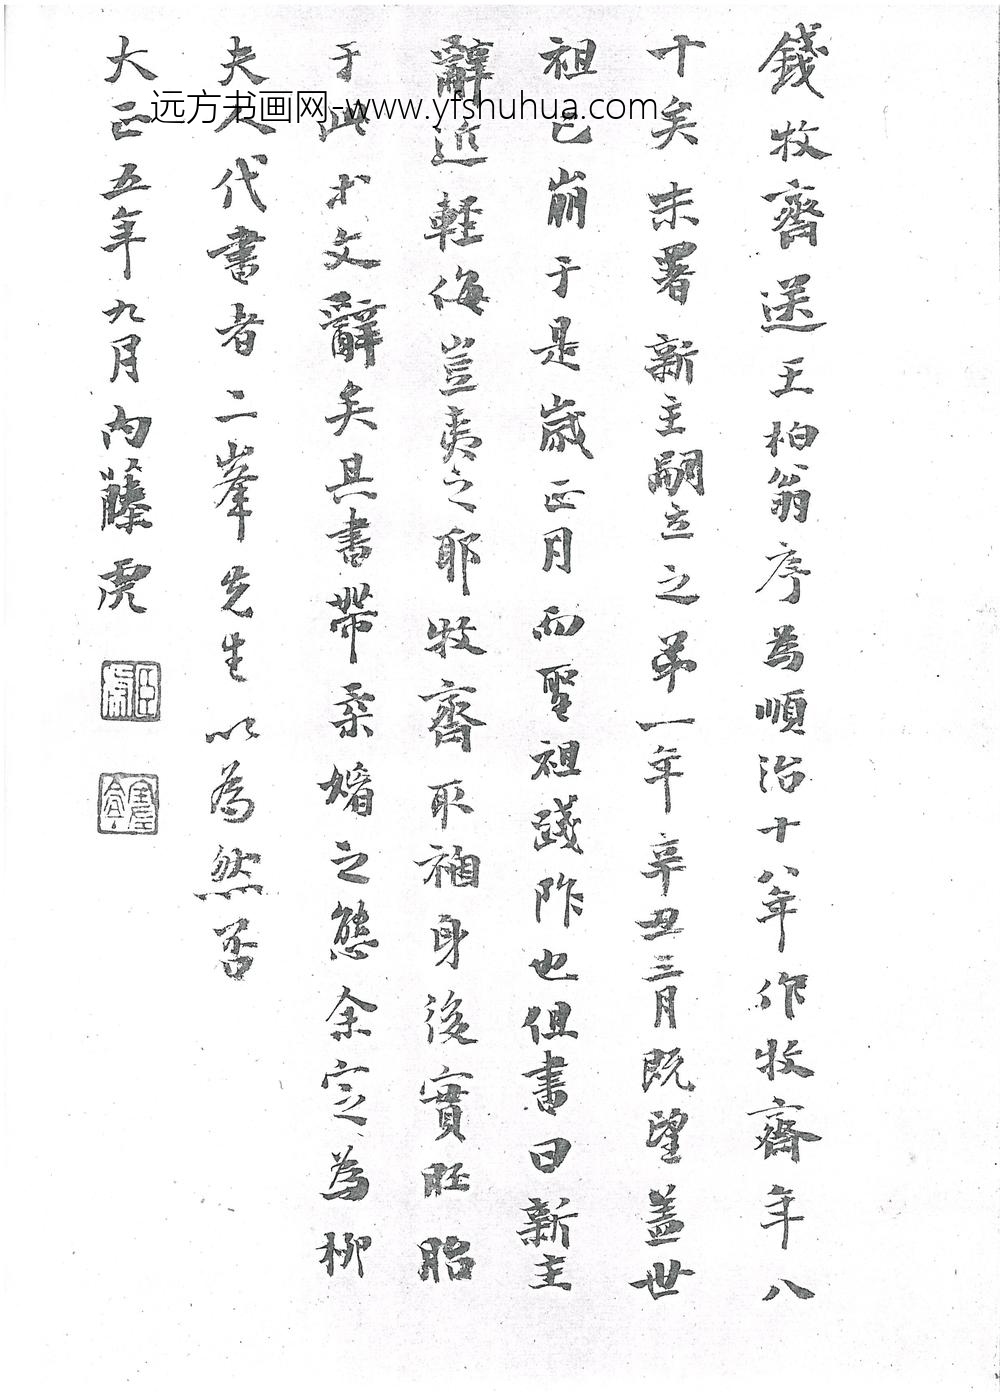 錢牧齋送王柏翁序為順治十八年作牧齋年八
十矣末署新主嗣立之弟一年辛丑三月既望盖世
祖已崩于是歳正月而聖祖踐阼也但書曰新主
辭近輕侮豈夷之耶牧齋取禍身後實胚胎
于此等文辭矣其書帶柔媚之態余定為柳
夫人代書者二峯先生以為然否
大正五年九月内藤虎
远方书画网-www.yfshuhua.com